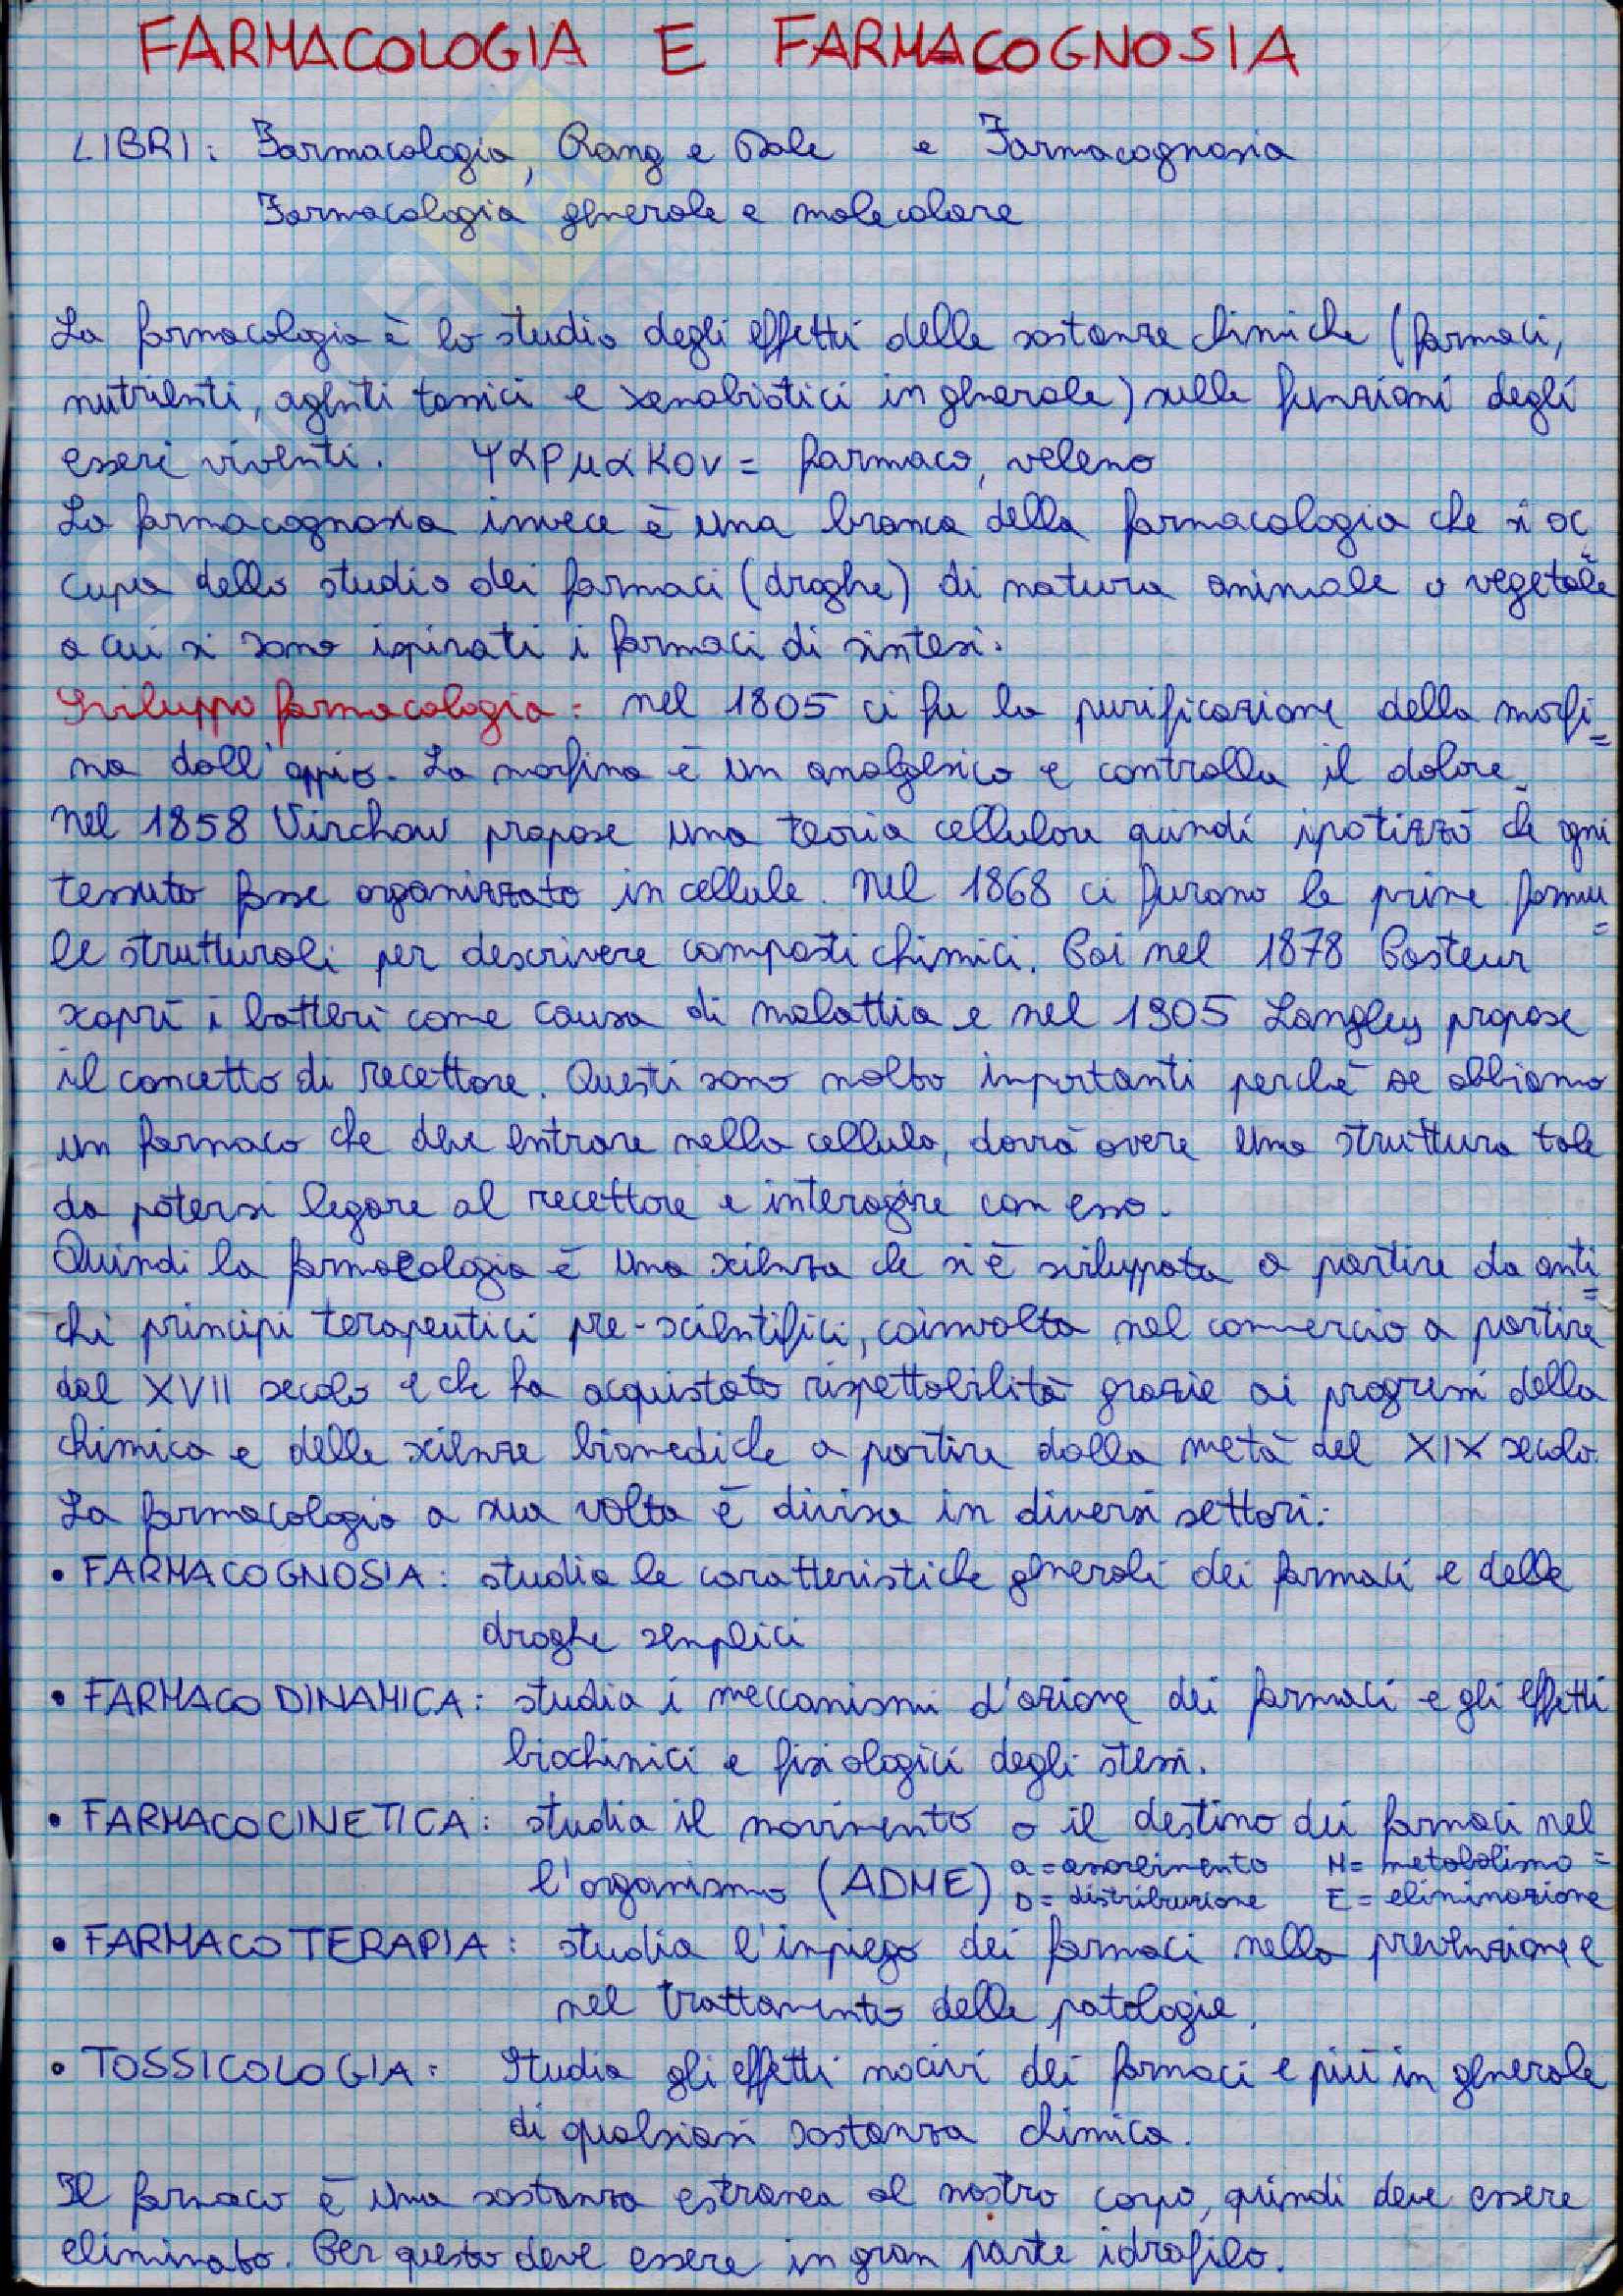 FARMACOLOGIA E FARMACOGNOSIA
LIBRI: Farmacologia, Rang e Dale e Farmacognosia
Farmacologia generale e molecolare
La farmacologia è lo studio degli effetti delle sostanze chimiche (farmaci,
nutrienti, agenti tossici e xenobiotici in generale) sulle funzioni degli
esseri viventi. φαρμακον = farmaco, veleno
La farmacognosia invece è una branca della farmacologia che si oc
cupa dello studio dei farmaci (droghe) di natura animale o vegetale
a cui si sono ispirati i farmaci di sintesi.
Sviluppo farmacologia: nel 1805 ci fu la purificazione della morfi=
na dall'oppio. La morfina è un analgesico e controlla il dolore.
Nel 1858 Virchow propose una teoria cellulare quindi ipotizzò che ogni
tessuto fosse organizzato in cellule. Nel 1868 ci furono le prime formu=
le strutturali per descrivere composti chimici. Poi nel 1878 Pasteur
scoprì i batteri come causa di malattia e nel 1905 Langley propose
il concetto di recettore. Questi sono molto importanti perchè se abbiamo
un farmaco che deve entrare nella cellula, dovrà avere una struttura tale
da potersi legare al recettore e interagire con esso.
Quindi la farmacologia è una scienza che si è sviluppata a partire da anti=
chi principi terapeutici pre-scientifici, coinvolta nel commercio a partire
dal XVII secolo e che ha acquistato rispettabilità grazie ai progressi della
chimica e delle scienze biomediche a partire dalla metà del XIX secolo.
La farmacologia a sua volta è divisa in diversi settori:
• FARMACOGNOSIA: studia le caratteristiche generali dei farmaci e delle
droghe semplici
• FARMACODINAMICA: studia i meccanismi d'azione dei farmaci e gli effetti
biochimici e fisiologici degli stessi.
• FARMACOCINETICA: studia il movimento o il destino dei farmaci nel
l'organismo (ADME) a = assorbimento M = metabolismo =
D = distribuzione E = eliminazione
• FARMACOTERAPIA: studia l'impiego dei farmaci nella prevenzione e
nel trattamento delle patologie.
• TOSSICOLOGIA: Studia gli effetti nocivi dei farmaci e più in generale
di qualsiasi sostanza chimica.
Il farmaco è una sostanza estranea al nostro corpo, quindi deve essere
eliminato. Per questo deve essere in gran parte idrofilo.